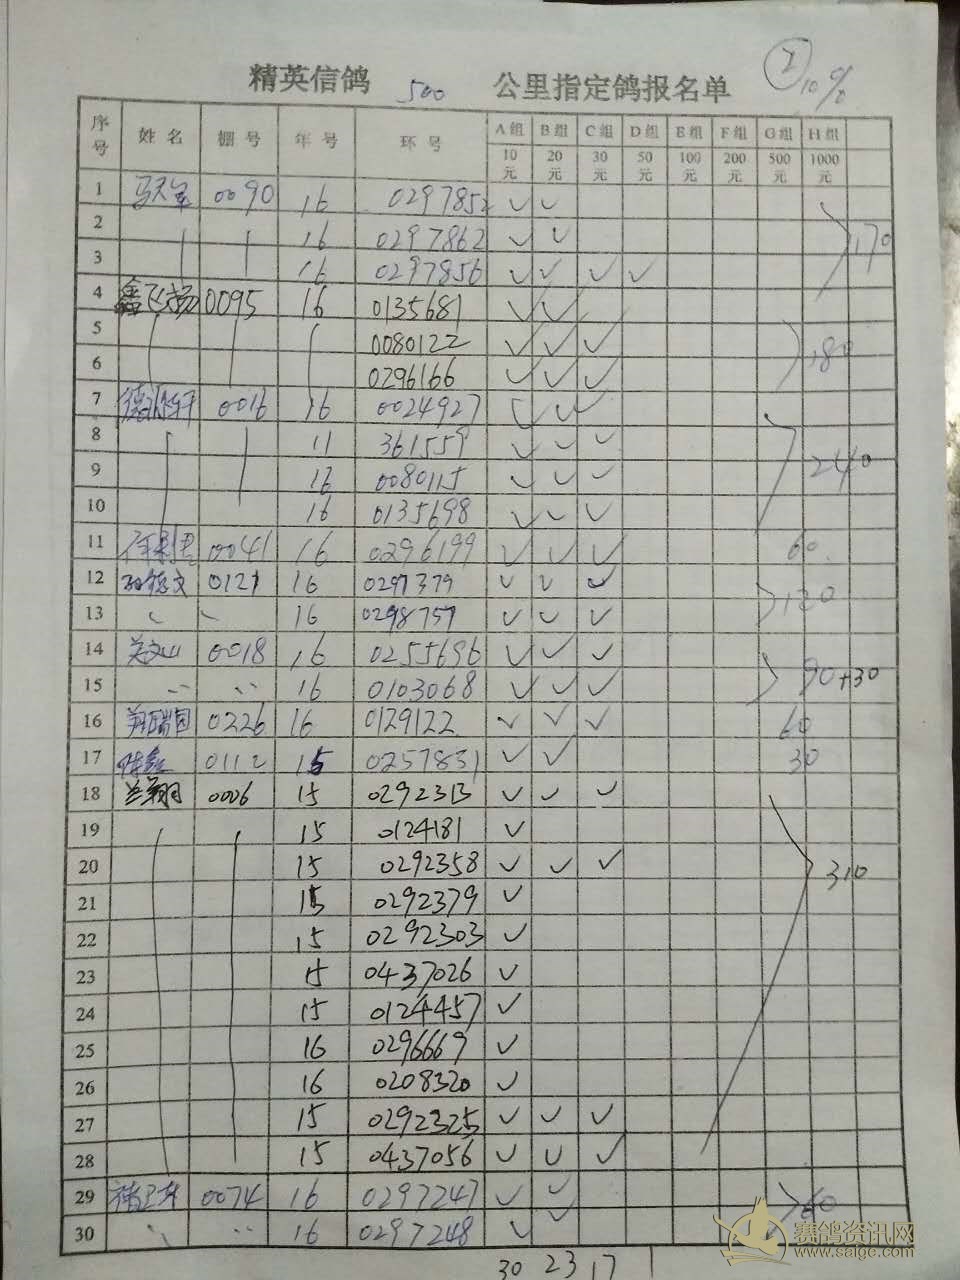 精英信鸽 500 公里指定鸽报名单 ② 10%
序号 姓名 棚号 年号 环号 A组 B组 C组 D组 E组 F组 G组 H组
10元 20元 30元 50元 100元 200元 500元 1000元
1 0090 16 0297852 ✓ ✓
2 16 0297862 ✓ ✓ 170
3 16 0297856 ✓ ✓ ✓ ✓
4 鑫飞扬 0095 16 0135681 ✓ ✓
5 0080122 ✓ ✓ ✓ 180
6 0296166 ✓ ✓ ✓
7 0016 16 0024927 ✓ ✓ ✓
8 11 361559 ✓ ✓ ✓
9 16 0080115 ✓ ✓ ✓ 240
10 16 0135698 ✓ ✓ ✓
11 0041 16 0296199 ✓ ✓ ✓ 60
12 0121 16 0297379 ✓ ✓ ✓ 120
13 16 0298757 ✓ ✓ ✓
14 关文山 0018 16 0255696 ✓ ✓ ✓ 90+30
15 16 0103068 ✓ ✓ ✓
16 翔瑞国 0226 16 0129122 ✓ ✓ ✓ 60
17 0112 15 0257831 ✓ ✓ 30
18 兰翔 0006 15 0292313 ✓ ✓ ✓
19 15 0124181 ✓
20 15 0292358 ✓ ✓ ✓ 310
21 15 0292379 ✓
22 15 0292303 ✓
23 15 0437026 ✓
24 15 0124457 ✓
25 16 0296669 ✓
26 16 0208320 ✓
27 15 0292325 ✓ ✓ ✓
28 15 0437056 ✓ ✓ ✓
29 0074 16 0297247 ✓ ✓ 60
30 16 0297248 ✓ ✓
30 23 17 1
赛鸽资讯网
www.saigc.com